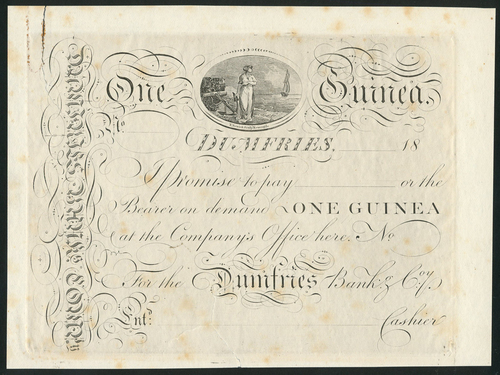 One Guinea.
No
DUMFRIES, 18
I Promise to pay or the
Bearer on demand ONE GUINEA
at the Company's Office here. No
For the Dumfries Bankg. Coy.
Ent.
Cashier